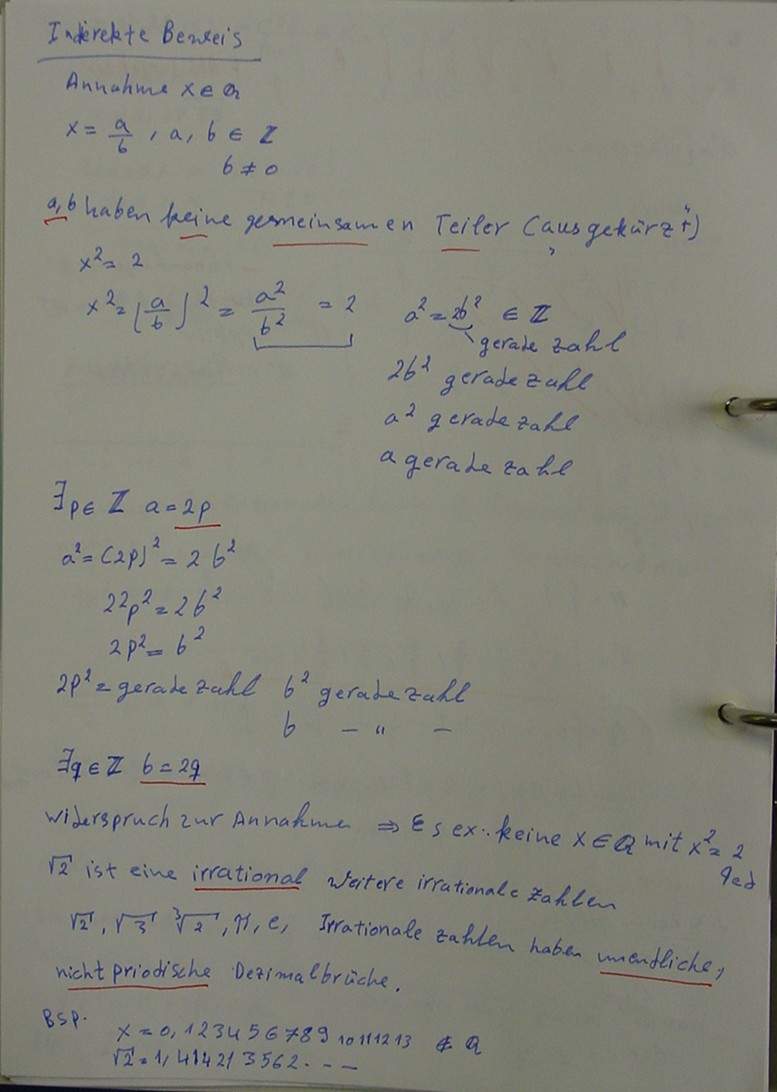 Indirekte Beweis
Annahme x ∈ ℚ
x = a/b , a, b ∈ ℤ
b ≠ 0
a, b haben keine gemeinsamen Teiler ("ausgekürzt")
x² = 2
x² = (a/b)² = a²/b² = 2
a² = 2b² ∈ ℤ
gerade zahl
2b² gerade zahl
a² gerade zahl
a gerade zahl
∃p ∈ ℤ a = 2p
a² = (2p)² = 2b²
2²p² = 2b²
2p² = b²
2p² = gerade zahl b² gerade zahl
b – " –
∃q ∈ ℤ b = 2q
Widerspruch zur Annahme ⇒ Es ex. keine x ∈ ℚ mit x² = 2
qed
√2 ist eine irrational weitere irrationale zahlen
√2, √3 ³√2, π, e, Irrationale zahlen haben unendliche,
nicht priodische Dezimalbrüche.
BSP. x = 0,12345678910111213 ∉ ℚ
√2 = 1,414213562...--